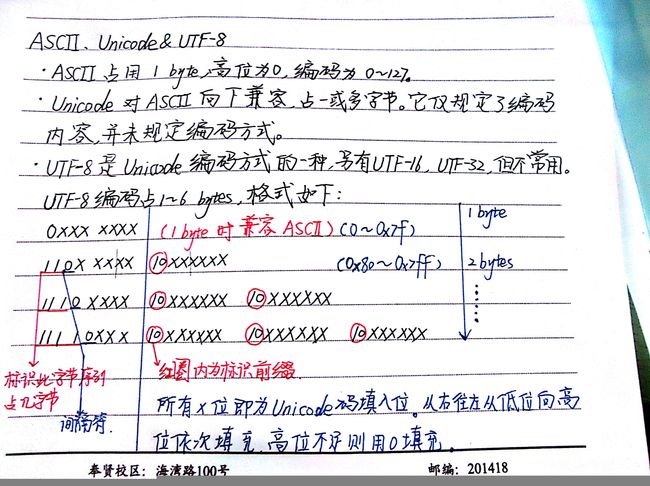 ASCII、Unicode & UTF-8
·ASCII 占用 1 byte,高位为0,编码为 0~127。
·Unicode 对 ASCII 向下兼容,占一或多字节。它仅规定了编码
内容,并未规定编码方式。
·UTF-8 是 Unicode 编码方式的一种,另有UTF-16、UTF-32,但不常用。
UTF-8 编码占1~6 bytes,格式如下:
0XXX XXXX (1 byte 时兼容 ASCII) (0~0x7f) 1 byte
110X XXXX 10XXXXXX (0x80~0x7ff) 2 bytes
1110 XXXX 10XXXXXX 10XXXXXX
1111 0XXX 10XXXXXX 10XXXXXX 10XXXXXX
标识此字节序列
占几字节
间隔符.
红圈内为标识前缀.
所有x位即为Unicode码填入位。从右往左从低位向高
位依次填充,高位不足则用0填充。
奉贤校区:海湾路100号 邮编:201418